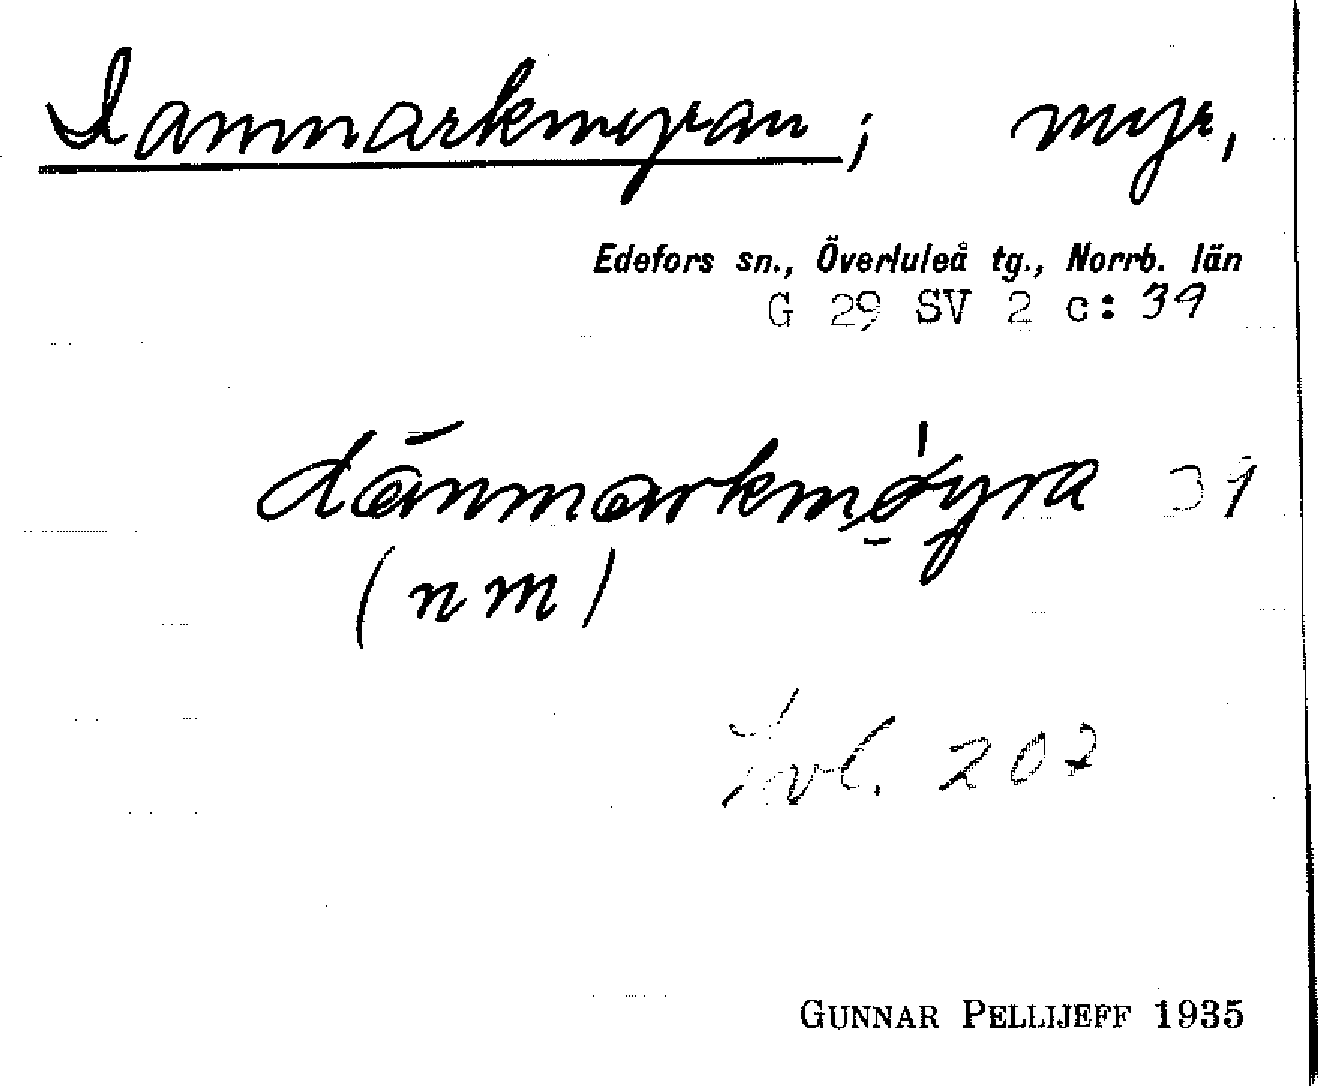 Danmarkmyran; myr,
Edefors sn., Överluleå tg., Norrb. län
G 29 SV 2 c: 39
dánmarkmøyra 39
(n m)
Ivl. 202
GUNNAR PELLIJEFF 1935